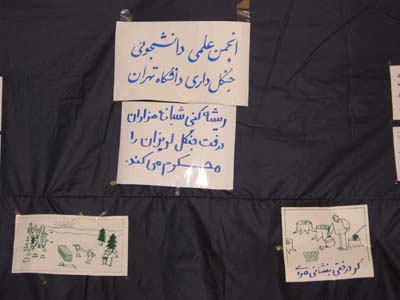 انجمن علمی دانشجوئی
جنگل داری دانشگاه تهران
ریشه کنی شبانه هزاران
درخت جنگل لویزان را
محکوم می کند.
گر درختی بنشانی